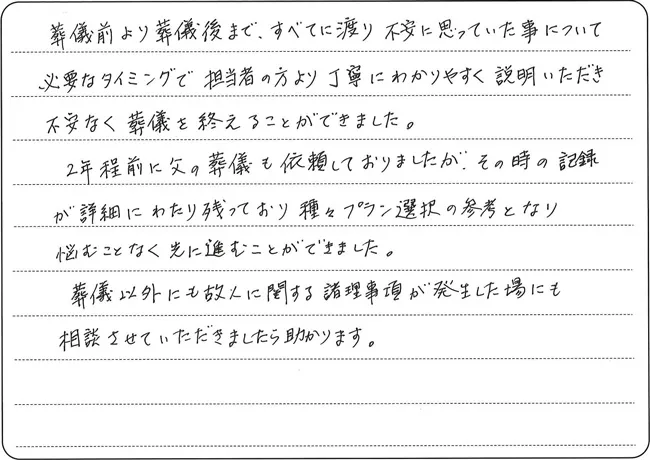 葬儀前より葬儀後まで、すべてに渡り 不安に思っていた事について
必要なタイミングで 担当者の方より 丁寧にわかりやすく 説明いただき
不安なく 葬儀を 終えることができました。
2年程前に父の葬儀も依頼しておりましたが、その時の記録
が詳細にわたり残っており 種々プラン選択の参考となり
悩むことなく先に進むことができました。
葬儀以外にも故人に関する諸理事項が発生した場にも
相談させていただきましたら助かります。